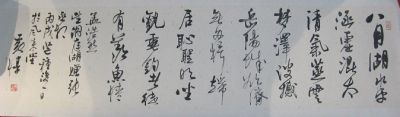 八月湖水平
涵虛混太
清氣蒸雲
夢澤波撼
岳陽城欲濟
無舟楫端
居恥聖明坐
觀垂釣者徒
有羨魚情
孟浩然
望洞庭湖贈張
丞相
丙戌後一日